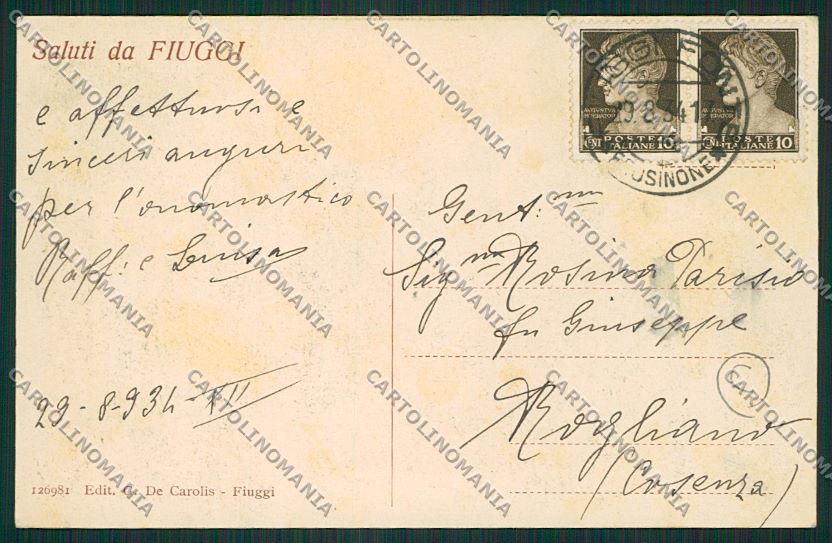 Saluti da FIUGGI
e affettuosi e
sinceri auguri
per l'onomastico
Raff: e Luisa
29-8-934-XII
126981 Edit. C. De Carolis - Fiuggi
AUGVSTVS
IMPERATOR
CENT
POSTE
ITALIANE 10
AUGVSTVS
IMPERATOR
CENT
POSTE
ITALIANE 10
29.8.34
FROSINONE
Gent:ma
Sigma Rosina Parisio
fu Giuseppe
Rogliano
(Cosenza)
CARTOLINOMANIA